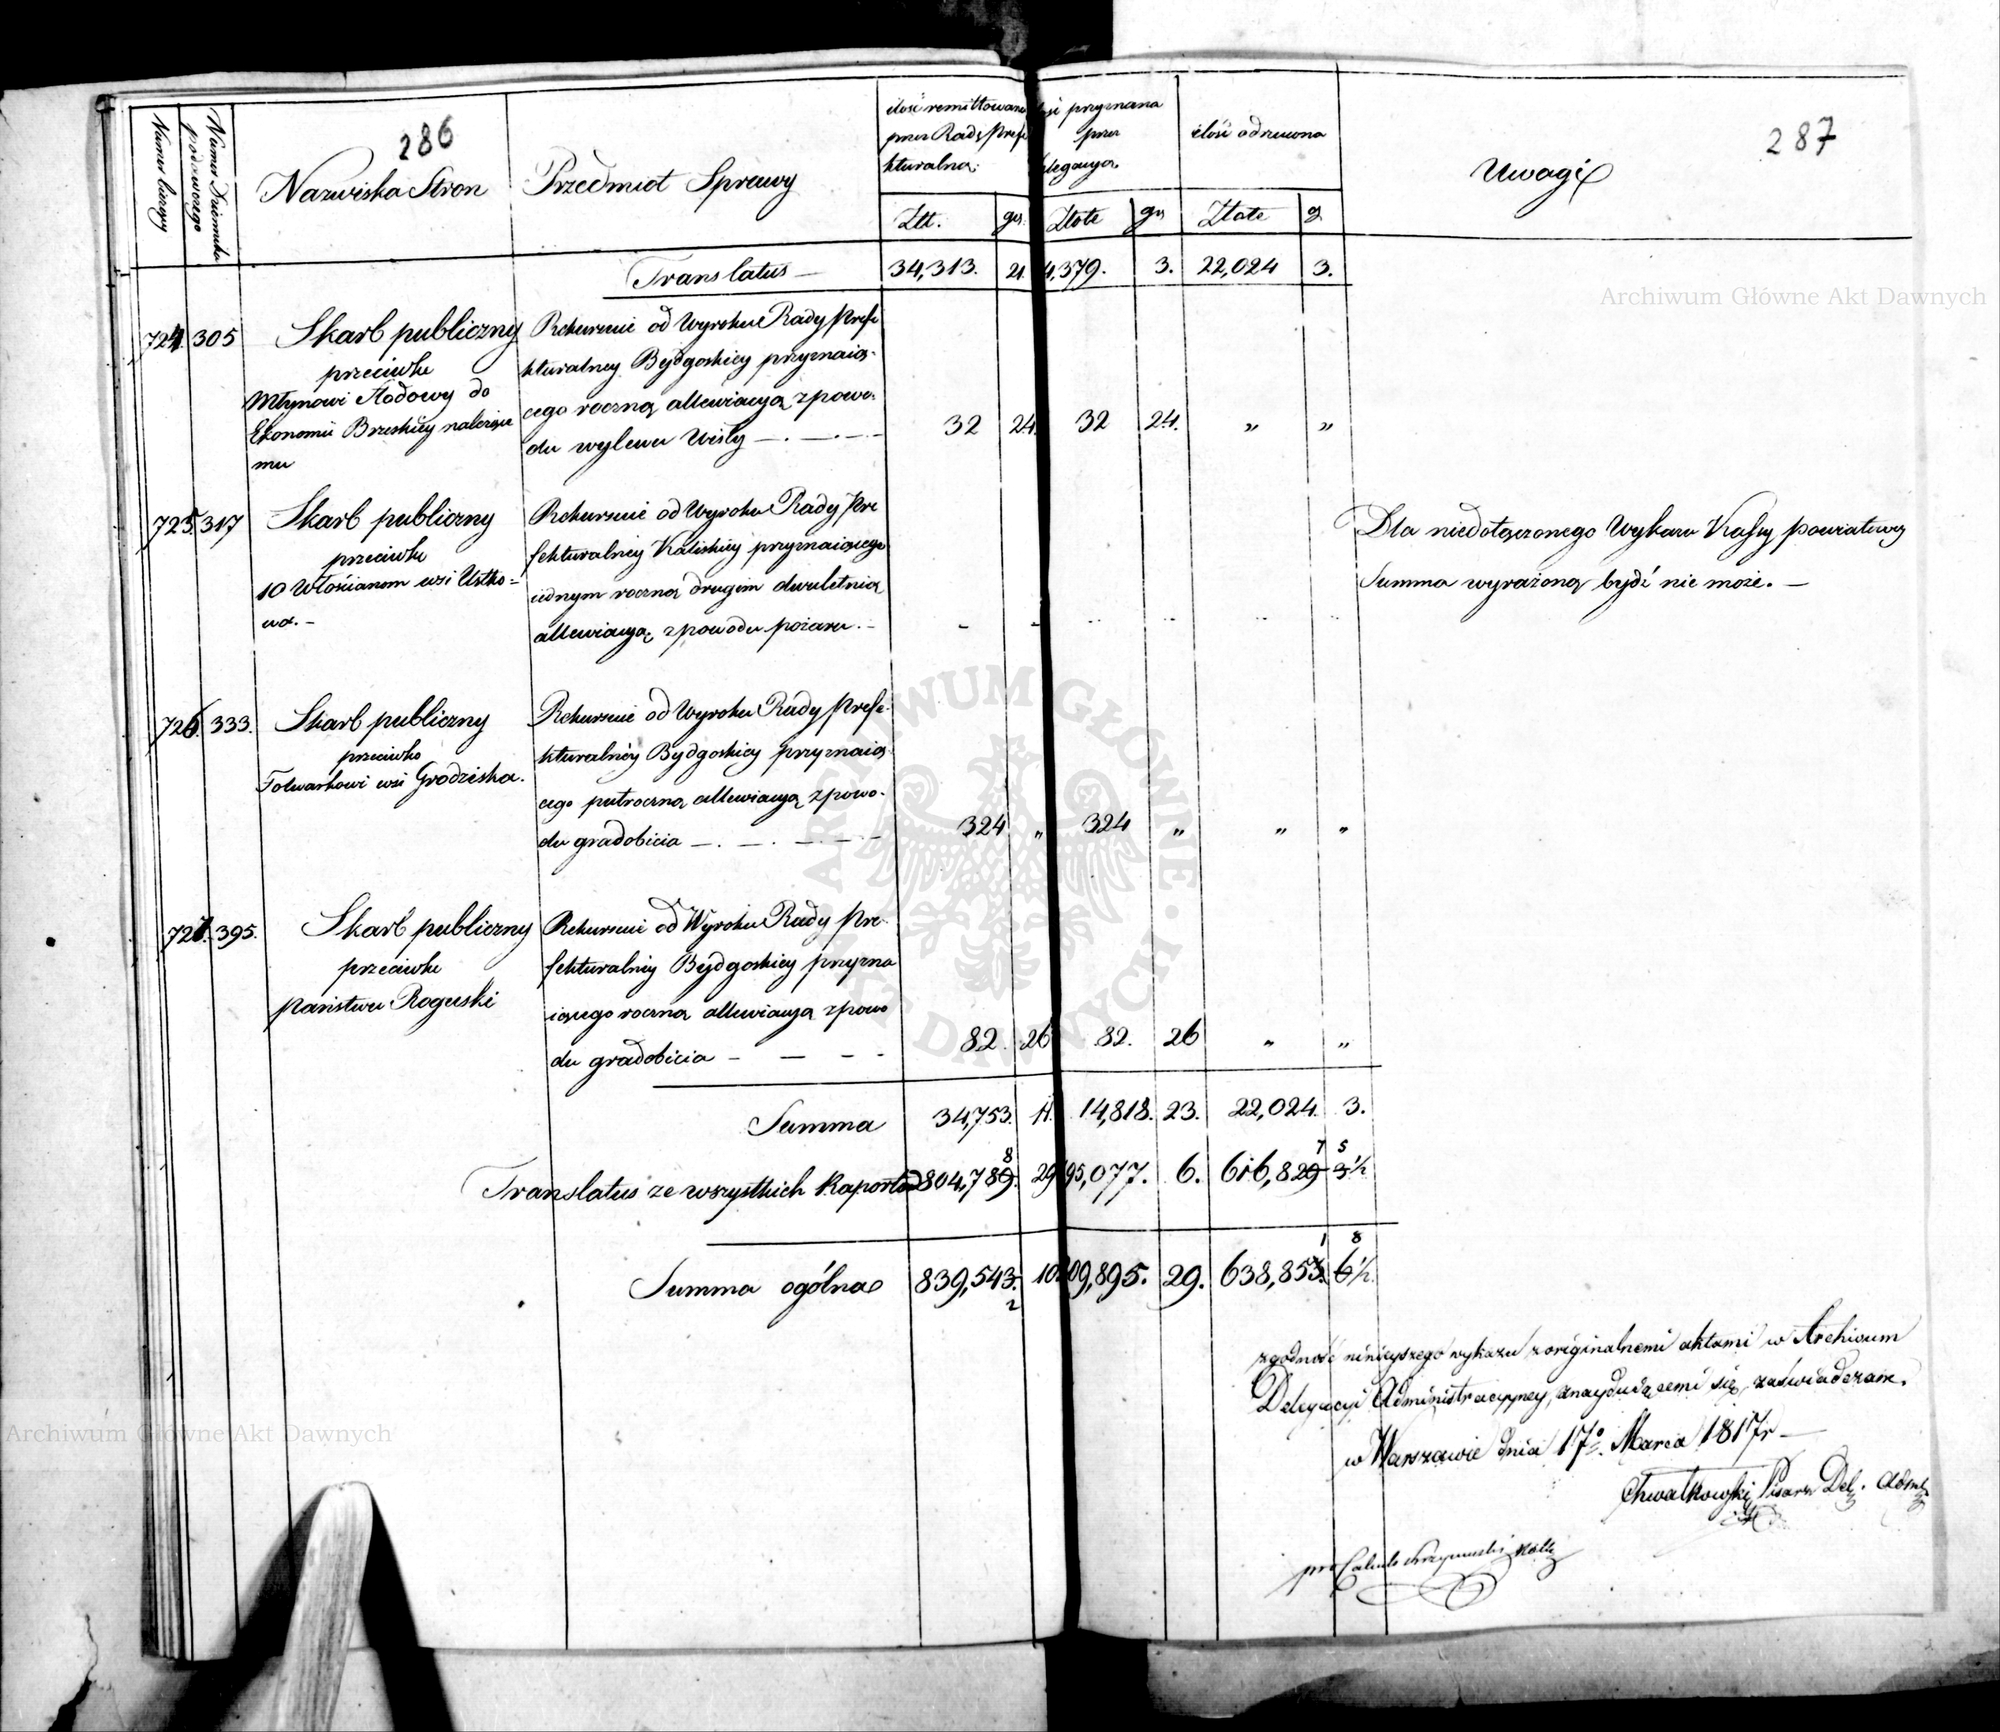 286
287
Numer bieżący
Numer Dziennika podawczego
Nazwiska Stron
Przedmiot Sprawy
ilość remittowana
przez Radę Prefe
kturalną
przyznana
przez
elegacyą
ilość odrzucona
Uwagi
Złt. gr. Złote gr Złote g.
Translatus — 34,313. 21 4,379. 3. 22,024 3.
724. 305 Skarb publiczny
przeciwko
Młynowi Słodowy do
Ekonomii Brzeskiey należące
mu
Rekursuie od Wyroku Rady Prefe
kturalney Bydgoskiey przyznaią-
cego roczną allewiacyą z powo-
du wylewu Wisły — . — . — 32 24. 32 24. „ „
725. 317 Skarb publiczny
przeciwko
10 Włościanom wsi Ustko-
wa. -
Rekursuie od Wyroku Rady Pre
fekturalney Kaliskiey przyznaiącego
iednym roczną drugim dwuletnią
allewiacyą z powodu pożaru. -
Dla niedołączonego Wykazu Kassy powiatowey
Summa wyrażoną bydź nie może. —
726. 333. Skarb publiczny
przeciwko
Folwarkowi wsi Grodziska.
Rekursuie od Wyroku Rady Prefe-
kturalney Bydgoskiey przyznaią
cego półroczną allewiacyą z powo-
du gradobicia — . — . — . — 324 „ 324 „ „ „
727. 395. Skarb publiczny
przeciwko
Państwu Roguski
Rekursuie od Wyroku Rady Pre-
fekturalney Bydgoskiey przyzna
iącego roczną allewiacyą z powo
du gradobicia — — — - 82. 26 82. 26 „ „
Summa 34,753. 11. 14,818. 23. 22,024. 3.
8 7 5
Translatus ze wszystkich Raportów 804,789. 29 95,077. 6. 616,829 3½
1 8
Summa ogólna 839,543. 10 09,895. 29. 638,853. 6½.
2
zgodność ninieyszego wykazu z originalnemi aktami w Archiwum
Delegacyi Administracyyney, znayduiącemi się, zaświadczam.
w Warszawie dnia 17º. Marca 1817r —
Chwałkowski Pisarz Del. Adm
pro Calculo
Archiwum Główne Akt Dawnych
Archiwum Główne Akt Dawnych
ARCHIWUM GŁÓWNE AKT DAWNYCH